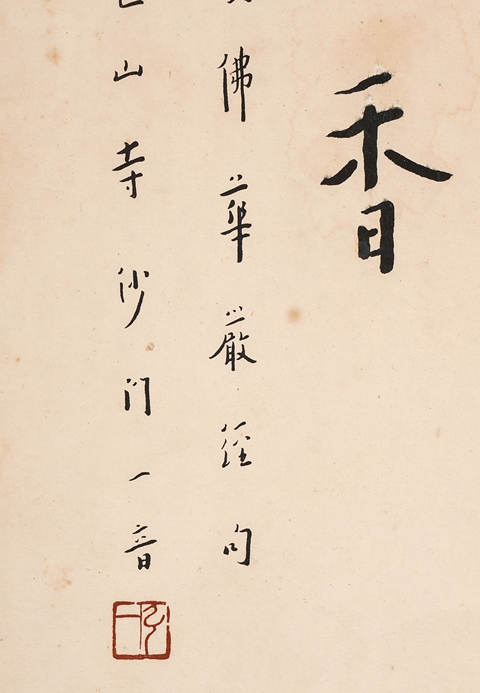 香
佛華嚴經句
山寺沙門一音